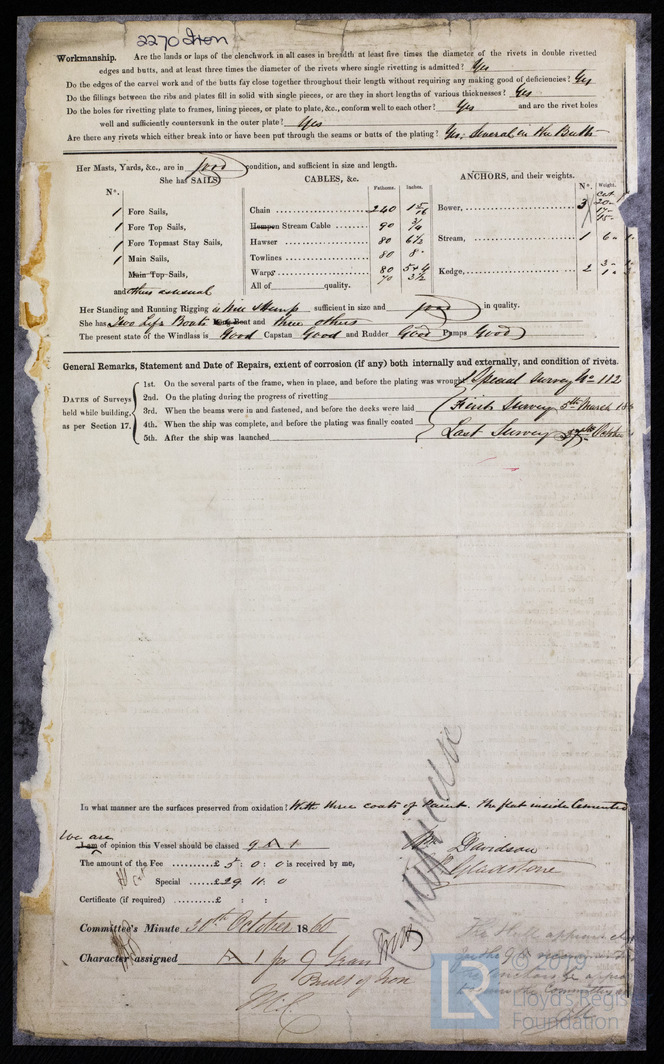 2270 Iron
Workmanship. Are the lands or laps of the clenchwork in all cases in breadth at least five times the diameter of the rivets in double rivetted
edges and butts, and at least three times the diameter of the rivets where single rivetting is admitted? Yes
Do the edges of the carvel work and of the butts fay close together throughout their length without requiring any making good of deficiencies? Yes
Do the fillings between the ribs and plates fill in solid with single pieces, or are they in short lengths of various thicknesses? Yes
Do the holes for rivetting plate to frames, lining pieces, or plate to plate, &c., conform well to each other? Yes and are the rivet holes
well and sufficiently countersunk in the outer plate? Yes
Are there any rivets which either break into or have been put through the seams or butts of the plating? Yes; Several in the Butts
Her Masts, Yards, &c., are in good condition, and sufficient in size and length.
She has SAILS. CABLES, &c. ANCHORS, and their weights.
N°. Fathoms. Inches. N°. Weight.
1 Fore Sails, Chain 240 1 15/16 Bower, 3
1 Fore Top Sails, Hempen Stream Cable 90
1 Fore Topmast Stay Sails, Hawser 80 6½ Stream, 1 6
1 Main Sails, Towlines 80 8
Main Top Sails, Warps 80 5+4 Kedge, 2
70 3½
and others as usual All of quality.
Her Standing and Running Rigging is Wire & Hemp sufficient in size and good in quality.
She has Two Life Boats Long Boat and three others
The present state of the Windlass is Good Capstan Good and Rudder Good Pumps Good
General Remarks, Statement and Date of Repairs, extent of corrosion (if any) both internally and externally, and condition of rivets.
DATES of Surveys held while building, as per Section 17.
1st. On the several parts of the frame, when in place, and before the plating was wrought Special Survey No 112
2nd. On the plating during the progress of rivetting
3rd. When the beams were in and fastened, and before the decks were laid First Survey 5th March 186
4th. When the ship was complete, and before the plating was finally coated
5th. After the ship was launched Last Survey October
In what manner are the surfaces preserved from oxidation? With three coats of Paint. The flat inside Cemented
We are
I am of opinion this Vessel should be classed 9 A 1
Davidson
The amount of the Fee £ 5 : 0 : 0 is received by me,
Gladstone
Special £ 29 11 0
Certificate (if required) £ : :
Committee's Minute 30th October 1860
Character assigned A 1 for 9 Years
Built of Iron
LR
© 2019
Lloyd's Register
Foundation